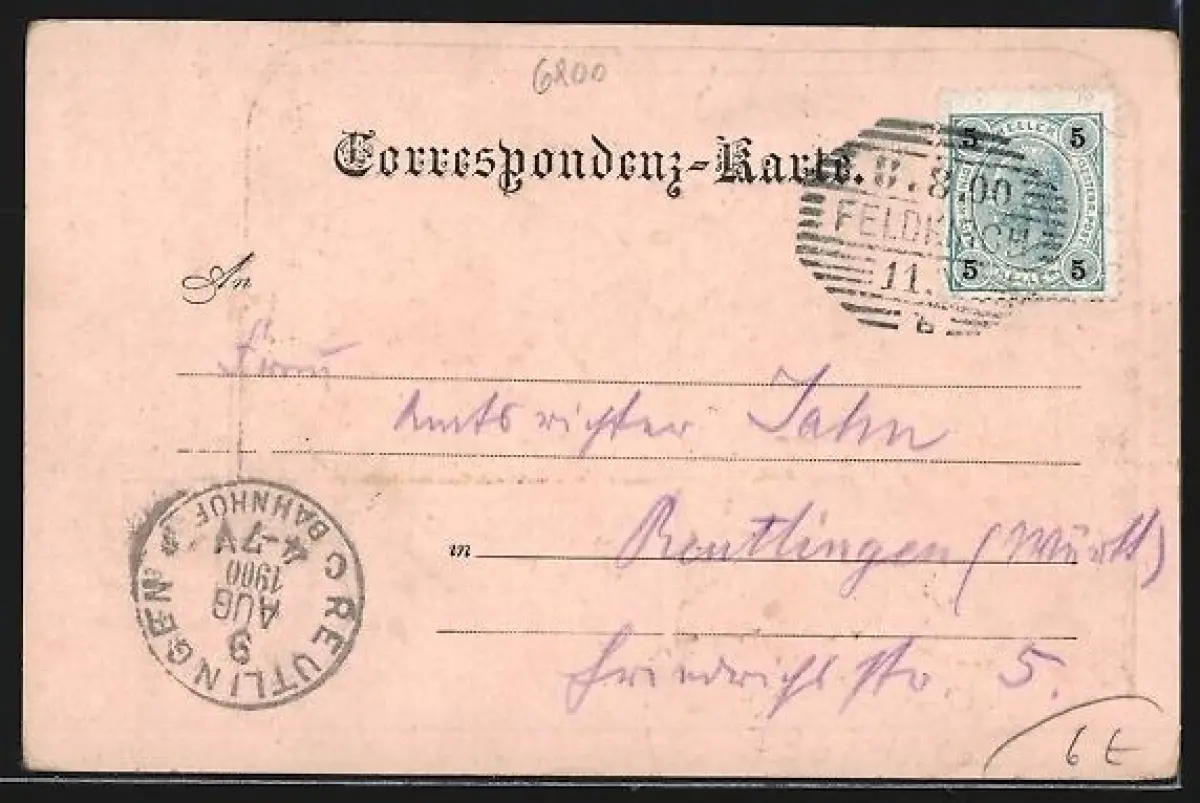 6800
Correspondenz-Karte.
5 HELLER 5
5 HELLER 5
8.8.00
FELDKIRCH
11.
An
Frau
Amtsrichter Jahn
in Reutlingen (Württ)
Friedrichstr. 5.
REUTLINGEN C BAHNHOF
9
AUG
1900
4-7 V
6 E